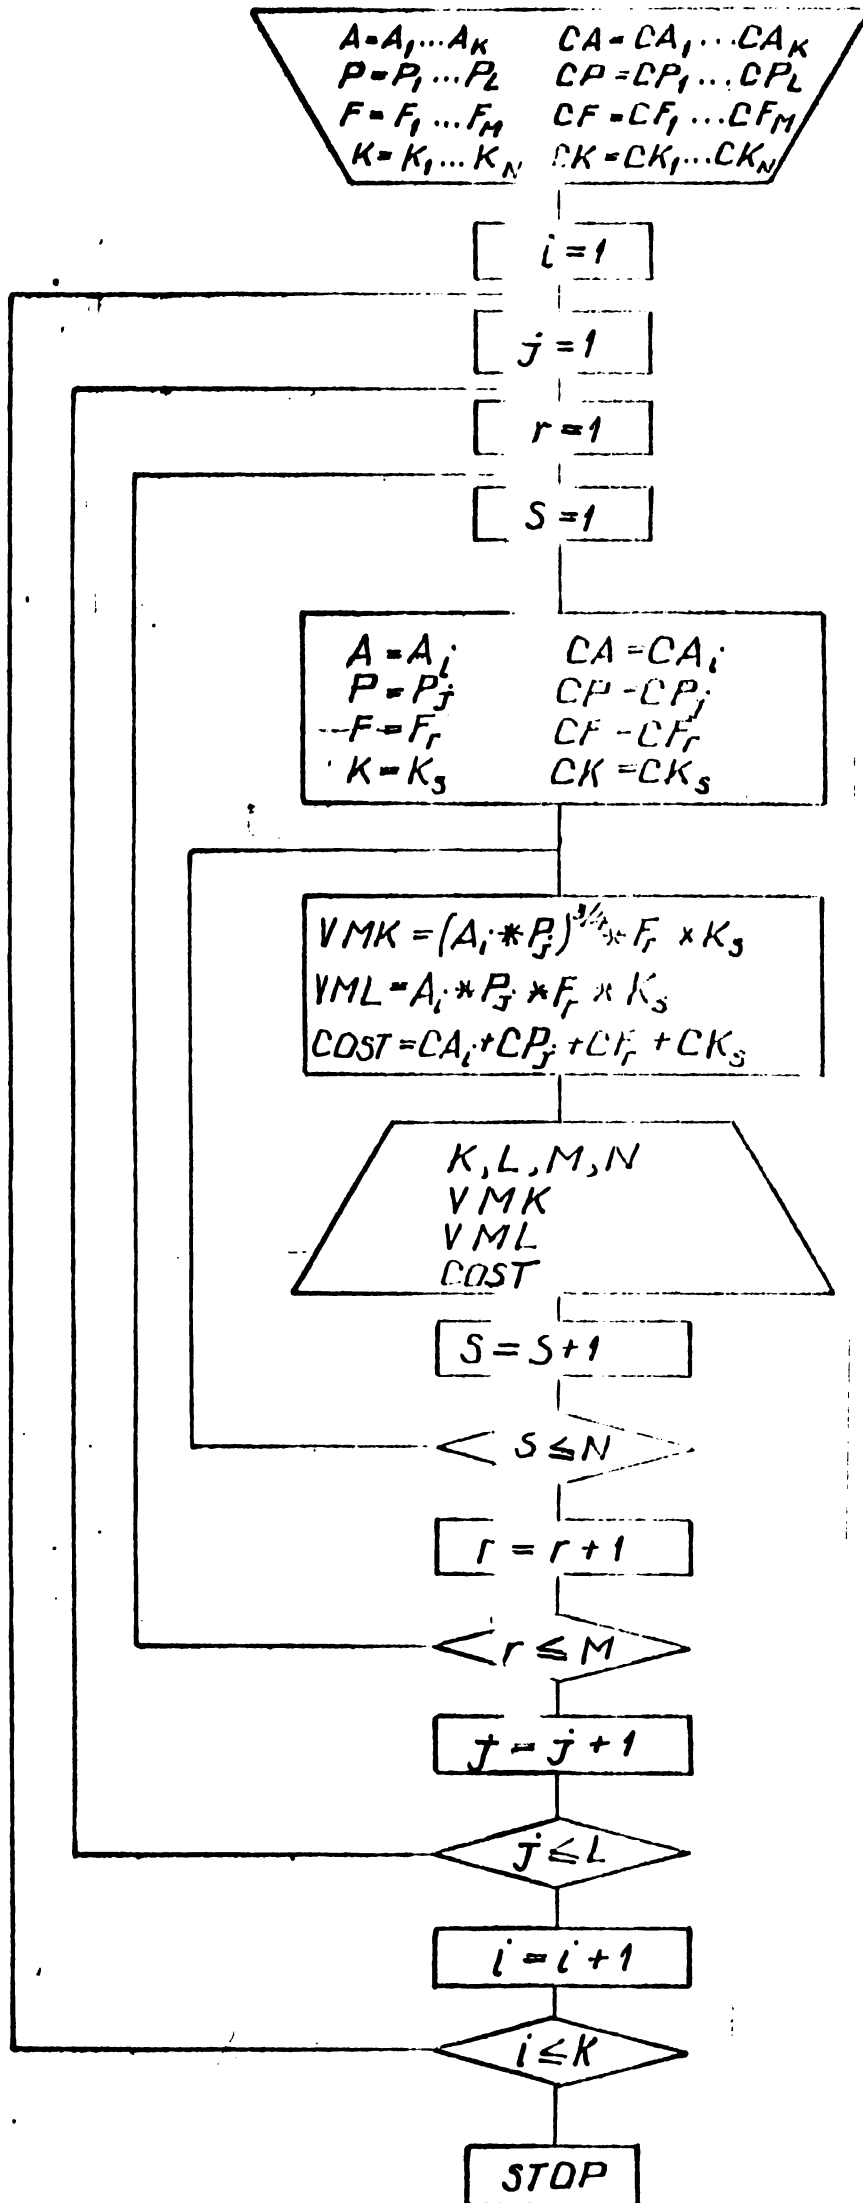 A=A₁...A_K CA=CA₁...CA_K
P=P₁...P_L CP=CP₁...CP_L
F=F₁...F_M CF=CF₁...CF_M
K=K₁...K_N CK=CK₁...CK_N
i=1
j=1
r=1
S=1
A=A_i CA=CA_i
P=P_j CP-CP_j
F=F_r CF-CF_r
K=K_s CK=CK_s
VMK=(A_i*P_j)^3/4*F_r×K_s
VML=A_i*P_j*F_r*K_s
COST=CA_i+CP_j+CF_r+CK_s
K,L,M,N
VMK
VML
COST
S=S+1
S≤N
r=r+1
r≤M
j=j+1
j≤L
i=i+1
i≤K
STOP